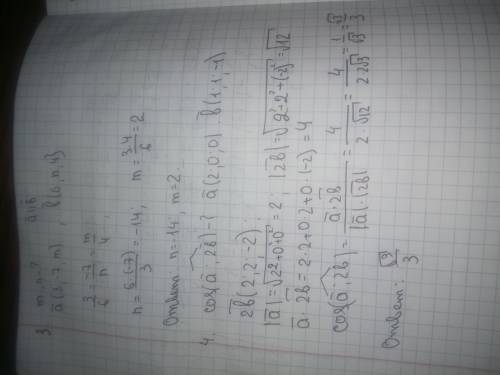 3. m, n - ? a̅ ∥ b̅
a̅ (3; -7; m) , b̅ (6; n; 4)
3/6 = -7/n = m/4 ;
n = 6·(-7)/3 = -14; m = 3·4/6 = 2
Ответ: n=-14; m=2
4. cos(a̅; 2b̅) - ? a̅(2; 0; 0) b̅(1; 1; -1)
2b̅(2; 2; -2);
|a̅| = √(2²+0²+0²) = 2; |2b̅| = √(2²+2²+(-2)²) = √12
a̅ · 2b̅ = 2·2+0·2+0·(-2) = 4
cos(a̅; 2b̅) = a̅·2b̅/(|a̅|·|2b̅|) = 4/(2·√12) = 4/(2·2√3) = 1/√3 = √3/3
Ответ: √3/3